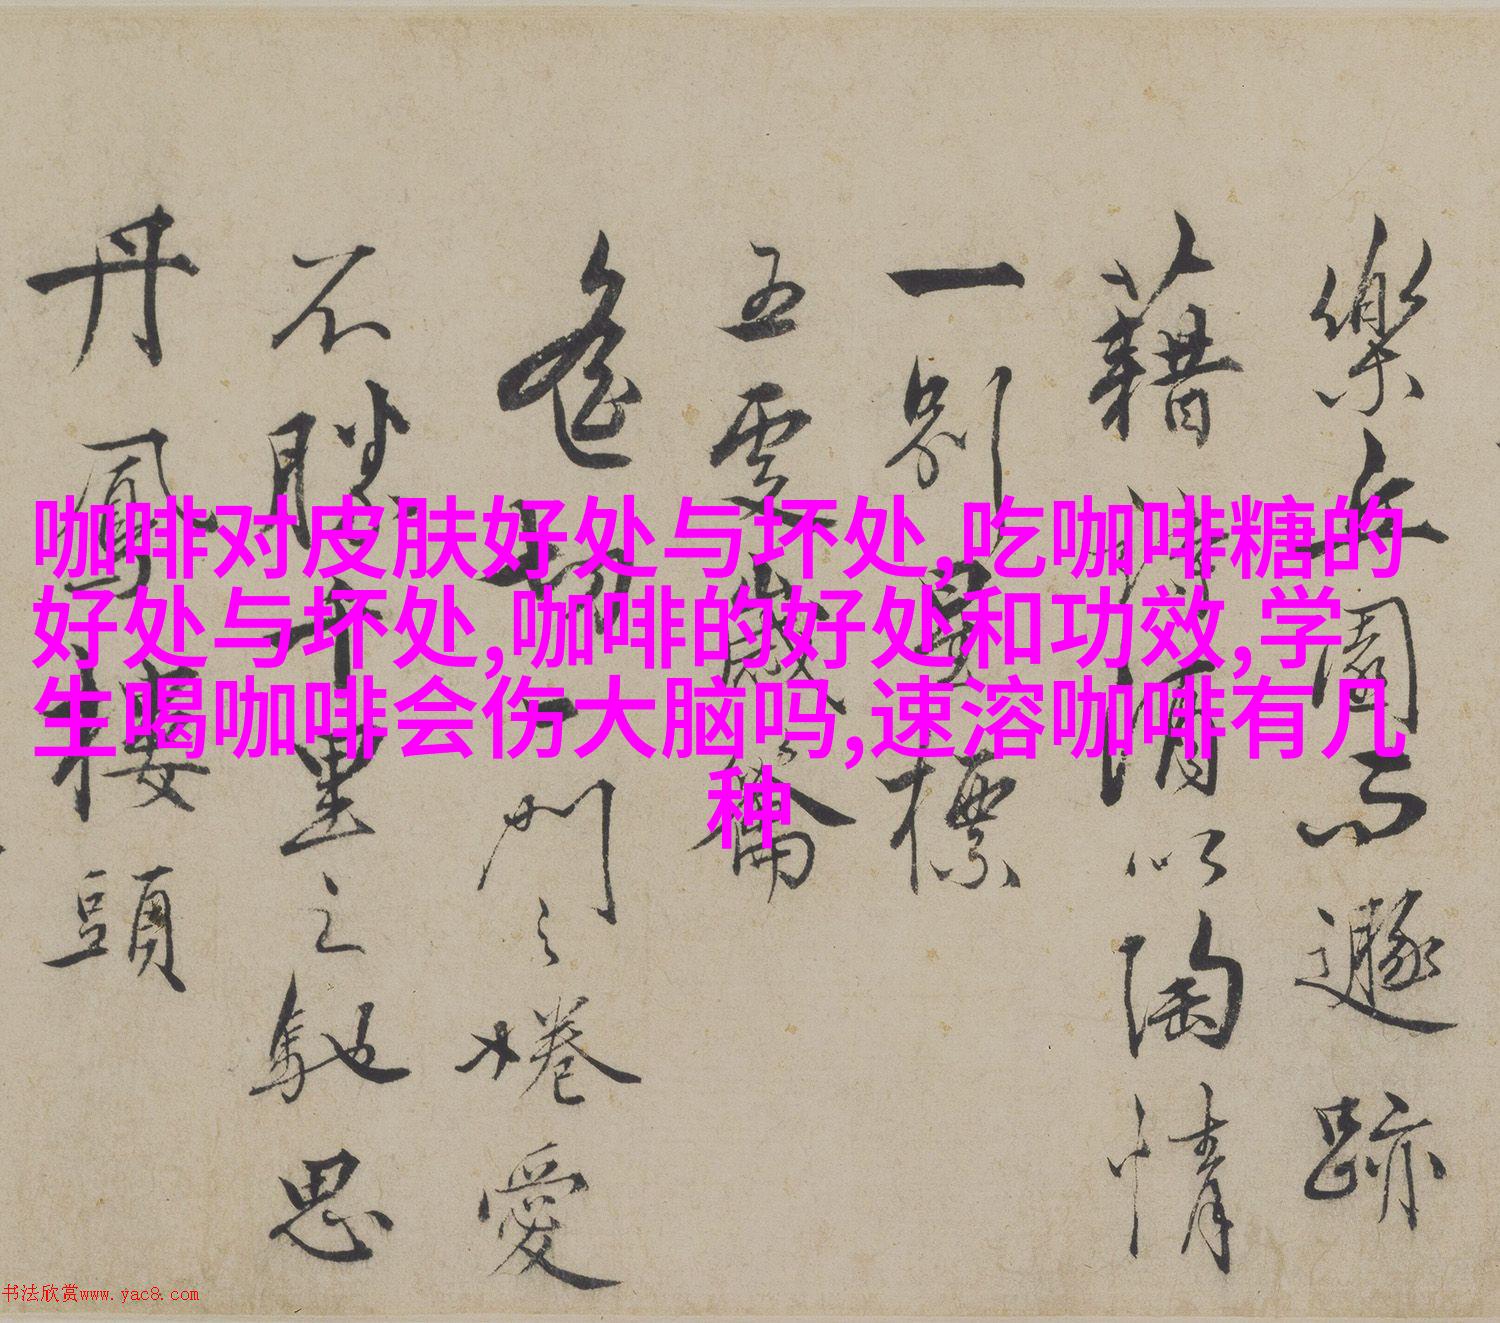 咖啡对皮肤好处与坏处,吃咖啡糖的
好处与坏处,咖啡的好处和功效,学
生喝咖啡会伤大脑吗,速溶咖啡有几
种
樂丘園而遯跡
藉琴酒以陶情
一別夐標
五變歲籥
遙切門之惓愛
不勝千里之馳思
丹鳳樓頭
书法欣赏www.yac8.com